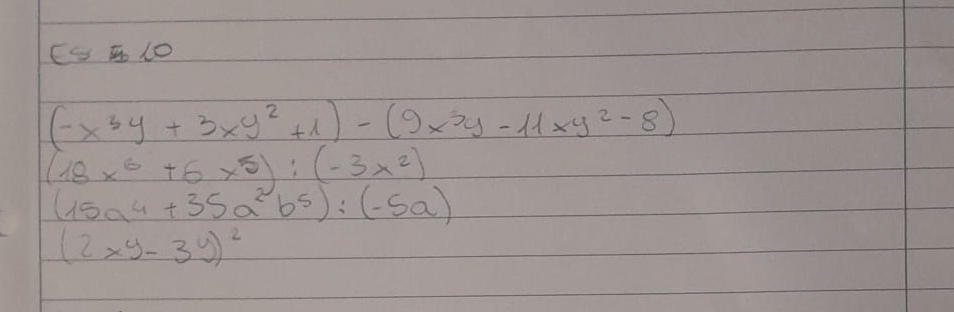 ES 10
(-x³y + 3xy² +1) - (9x³y - 11xy² - 8)
(18x⁶ + 6x⁵) : (-3x²)
(15a⁴ + 35a²b⁵) : (-5a)
(2xy - 3y)²